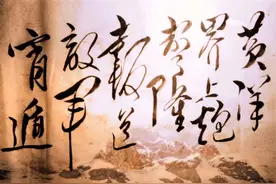 黄洋
界上炮
声隆
报道
敌军
宵遁